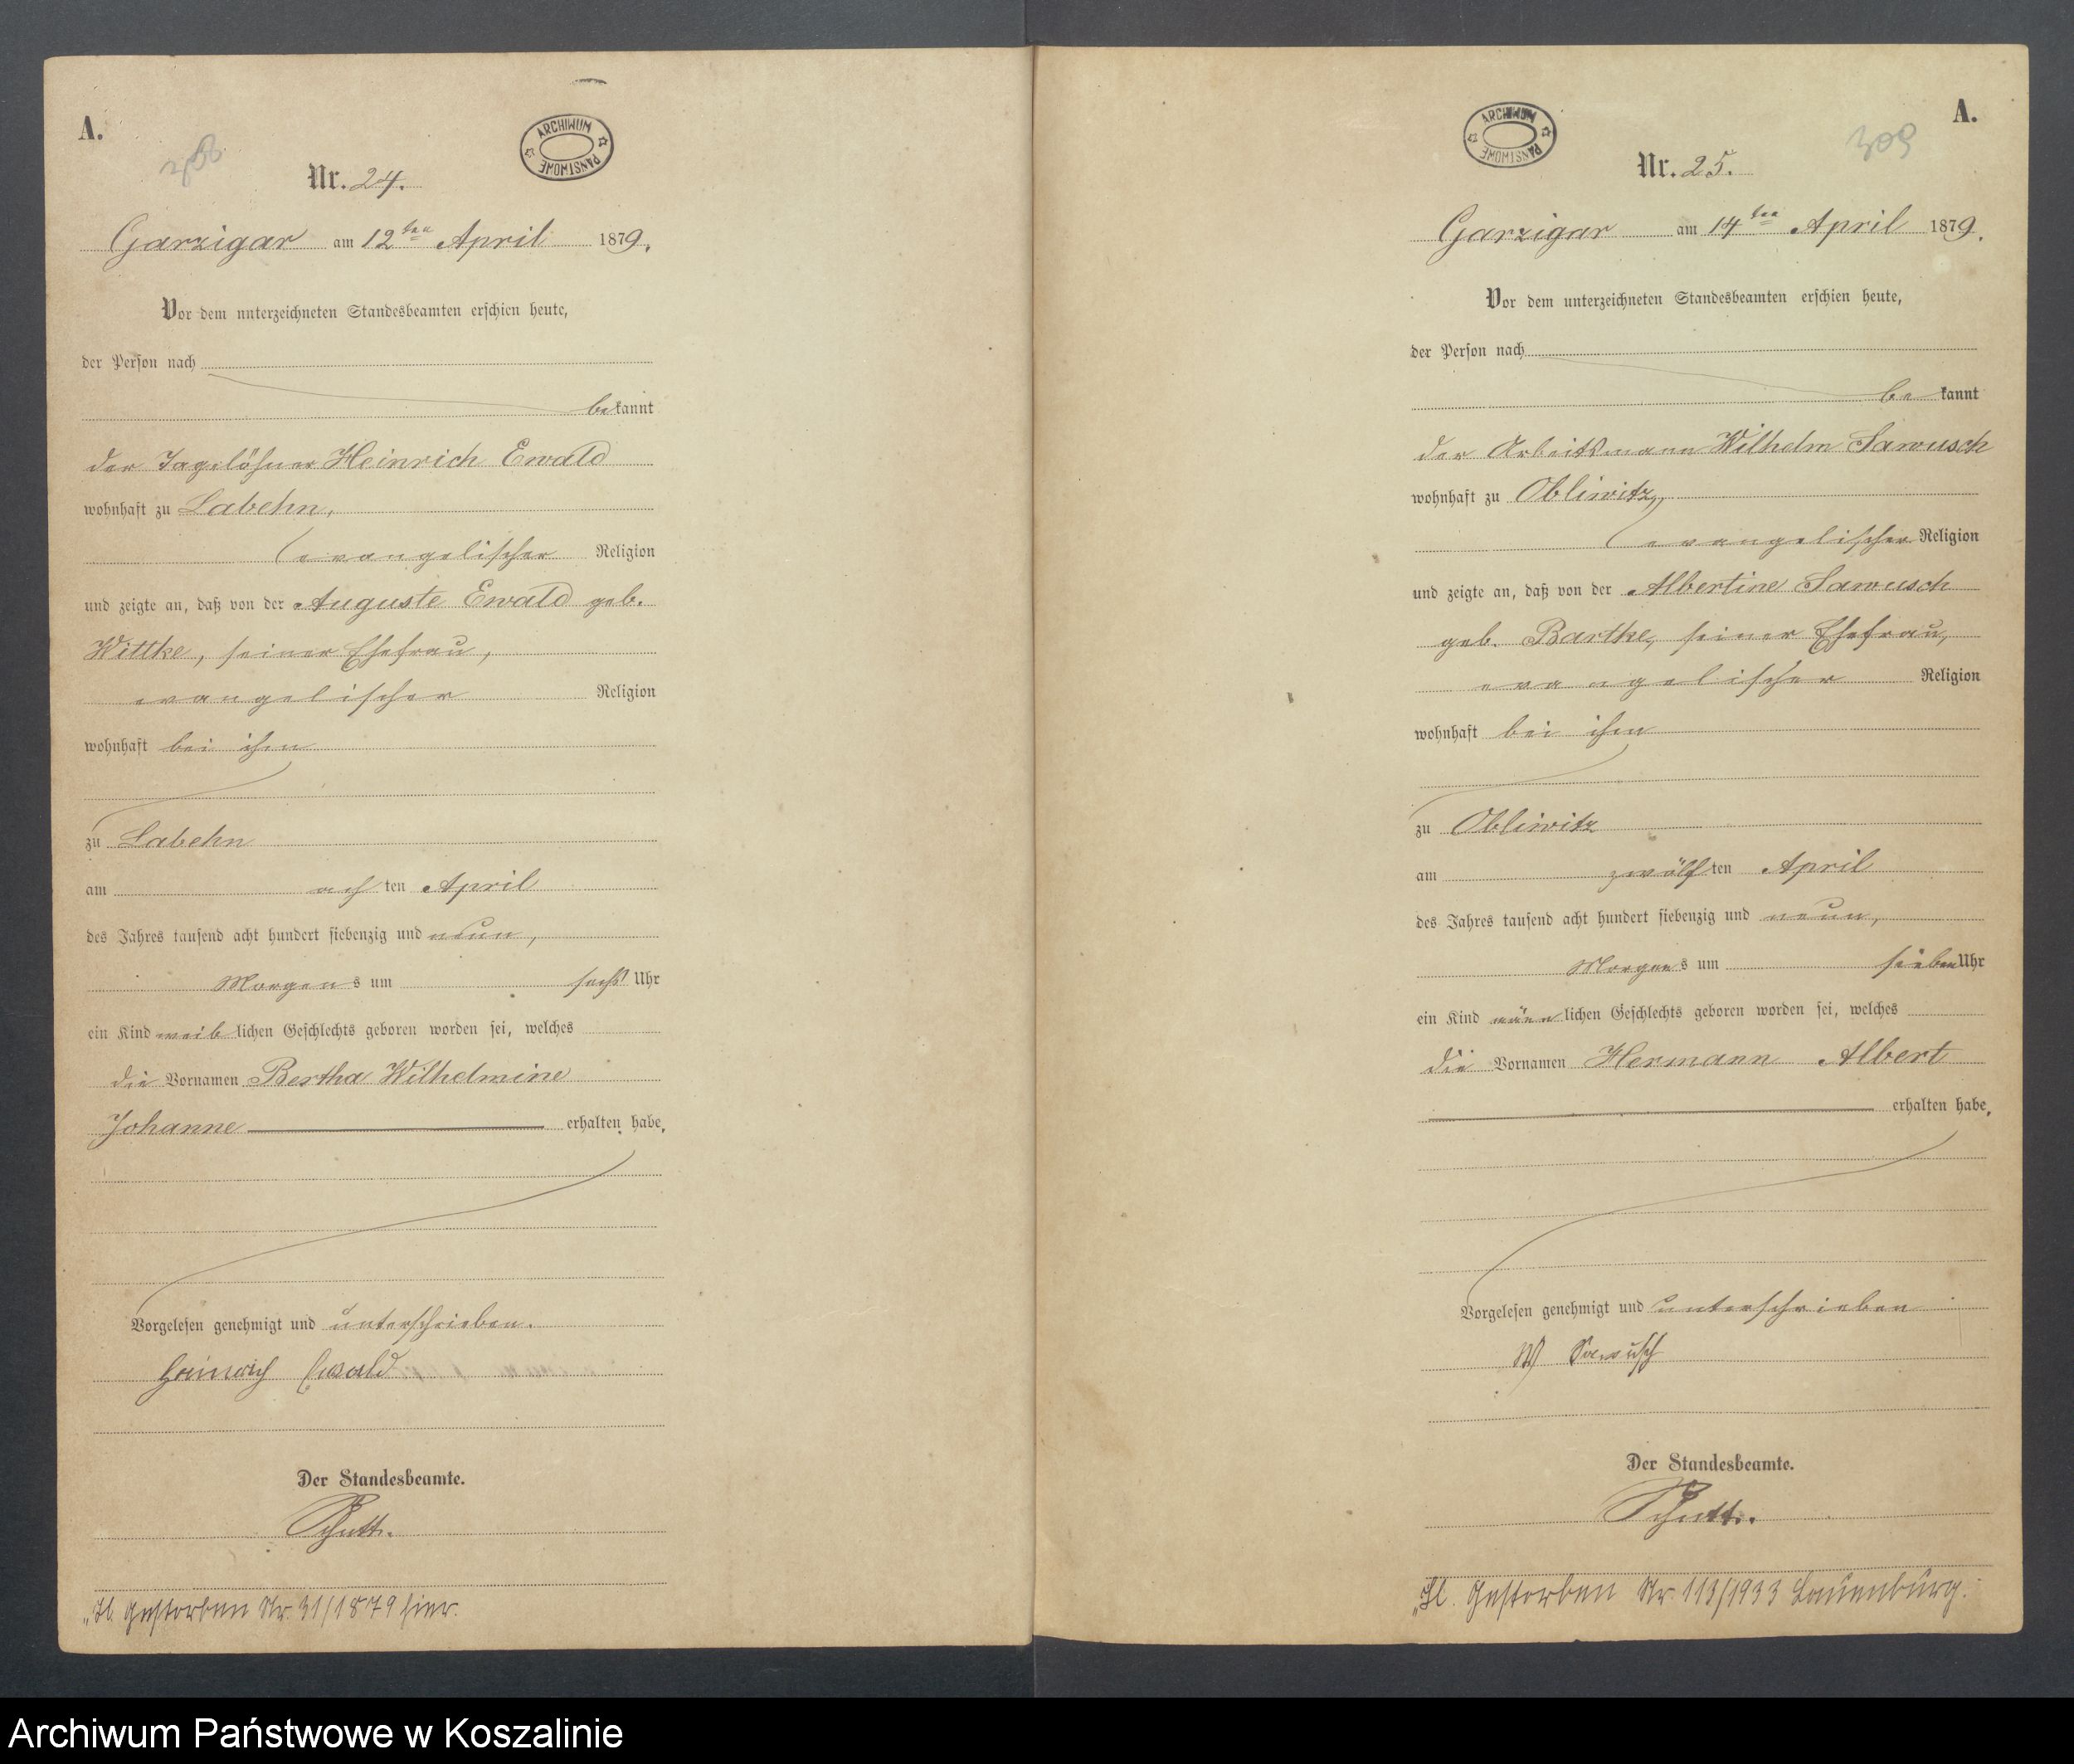 A.
308
ARCHIWUM PAŃSTWOWE
Nr. 24.
Garzigar am 12ten April 1879.
Vor dem unterzeichneten Standesbeamten erschien heute,
der Person nach
bekannt
der Tagelöhner Heinrich Ewald
wohnhaft zu Labehn,
evangelischer Religion
und zeigte an, daß von der Auguste Ewald geb.
Wittke, seiner Ehefrau,
evangelischer Religion
wohnhaft bei ihm
zu Labehn
am achten April
des Jahres tausend acht hundert siebenzig und neun,
Morgens um sechs Uhr
ein Kind weiblichen Geschlechts geboren worden sei, welches
die Vornamen Bertha Wilhelmine
Johanne erhalten habe.
Vorgelesen genehmigt und unterschrieben.
Heinrich Ewald
Der Standesbeamte.
Schutt.
Gestorben Nr. 31/1879 hier.
A.
309
ARCHIWUM PAŃSTWOWE
Nr. 25.
Garzigar am 14ten April 1879.
Vor dem unterzeichneten Standesbeamten erschien heute,
der Person nach
bekannt
der Arbeitsmann Wilhelm Sawusch
wohnhaft zu Obliwitz,
evangelischer Religion
und zeigte an, daß von der Albertine Sawusch
geb. Bartke, seiner Ehefrau,
evangelischer Religion
wohnhaft bei ihm
zu Obliwitz
am zwölften April
des Jahres tausend acht hundert siebenzig und neun,
Morgens um sieben Uhr
ein Kind männlichen Geschlechts geboren worden sei, welches
die Vornamen Hermann Albert
erhalten habe.
Vorgelesen genehmigt und unterschrieben
W Sawusch
Der Standesbeamte.
Schutt.
Gestorben Nr. 113/1933 Lauenburg.
Archiwum Państwowe w Koszalinie